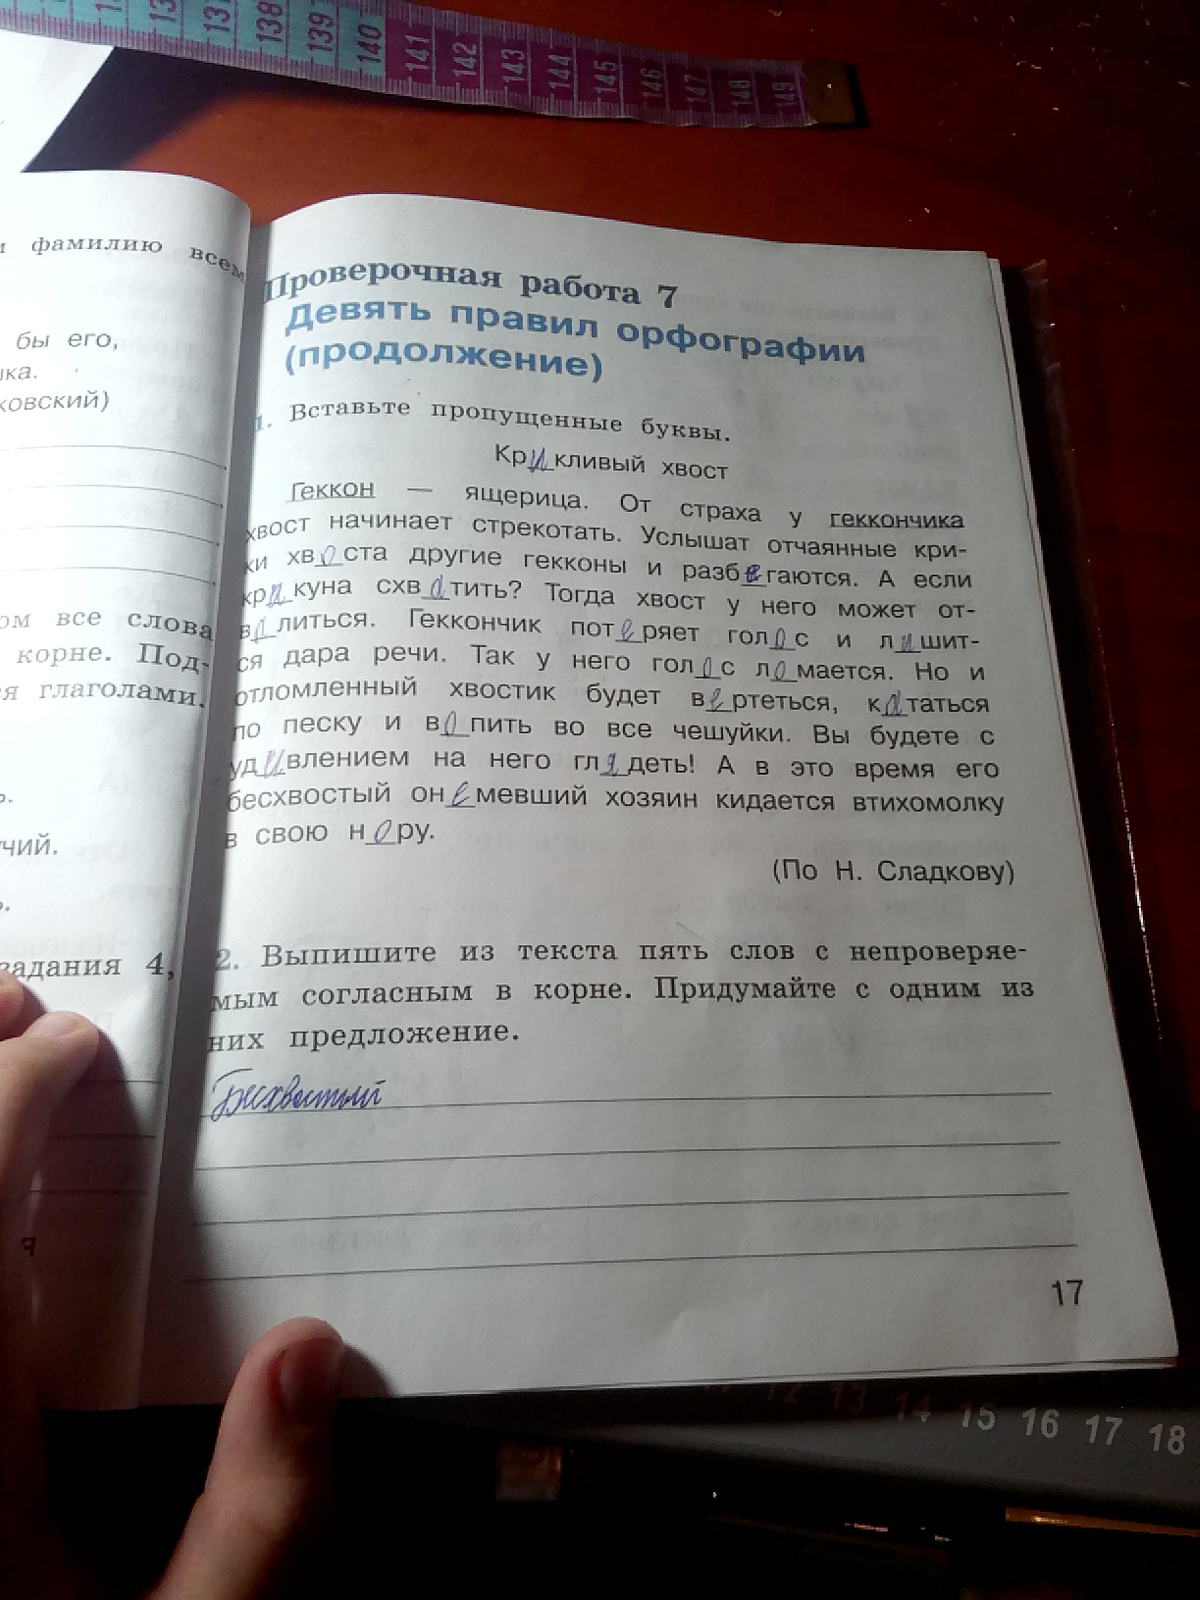 137 138 139 140 141 142 143 144 145 146 147 148 149
фамилию всем
бы его,
ом все слова
корне. Под-
глаголами.
учий.
задания 4,
Проверочная работа 7
Девять правил орфографии
(продолжение)
1. Вставьте пропущенные буквы.
Крикливый хвост
Геккон — ящерица. От страха у геккончика
хвост начинает стрекотать. Услышат отчаянные кри-
ки хвоста другие гекконы и разбегаются. А если
крикуна схватить? Тогда хвост у него может от-
валиться. Геккончик потеряет голос и лишит-
ся дара речи. Так у него голос ломается. Но и
отломленный хвостик будет вертеться, кататься
по песку и вопить во все чешуйки. Вы будете с
удивлением на него глядеть! А в это время его
бесхвостый онемевший хозяин кидается втихомолку
в свою нору.
(По Н. Сладкову)
2. Выпишите из текста пять слов с непроверяе-
мым согласным в корне. Придумайте с одним из
них предложение.
Бесхвостый
17
12 13 14 15 16 17 18